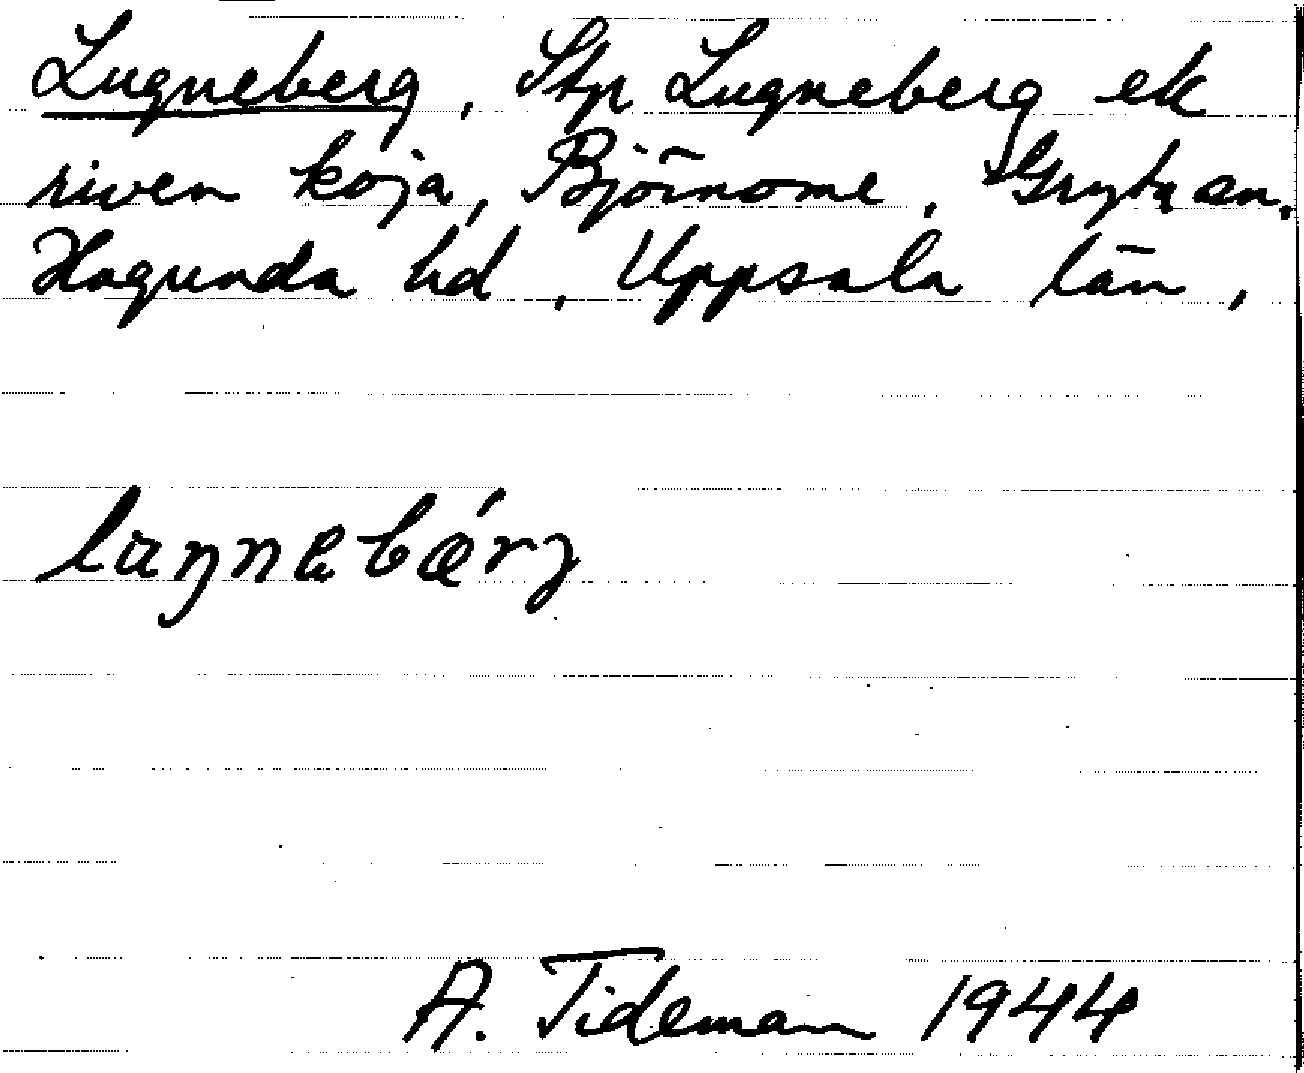 Lugneberg, Stp Lugneberg ek
riven koja, Björnome, Gryta sn,
Hagunda hd, Uppsala län,
luŋnəbǽrj
A. Tideman 1944